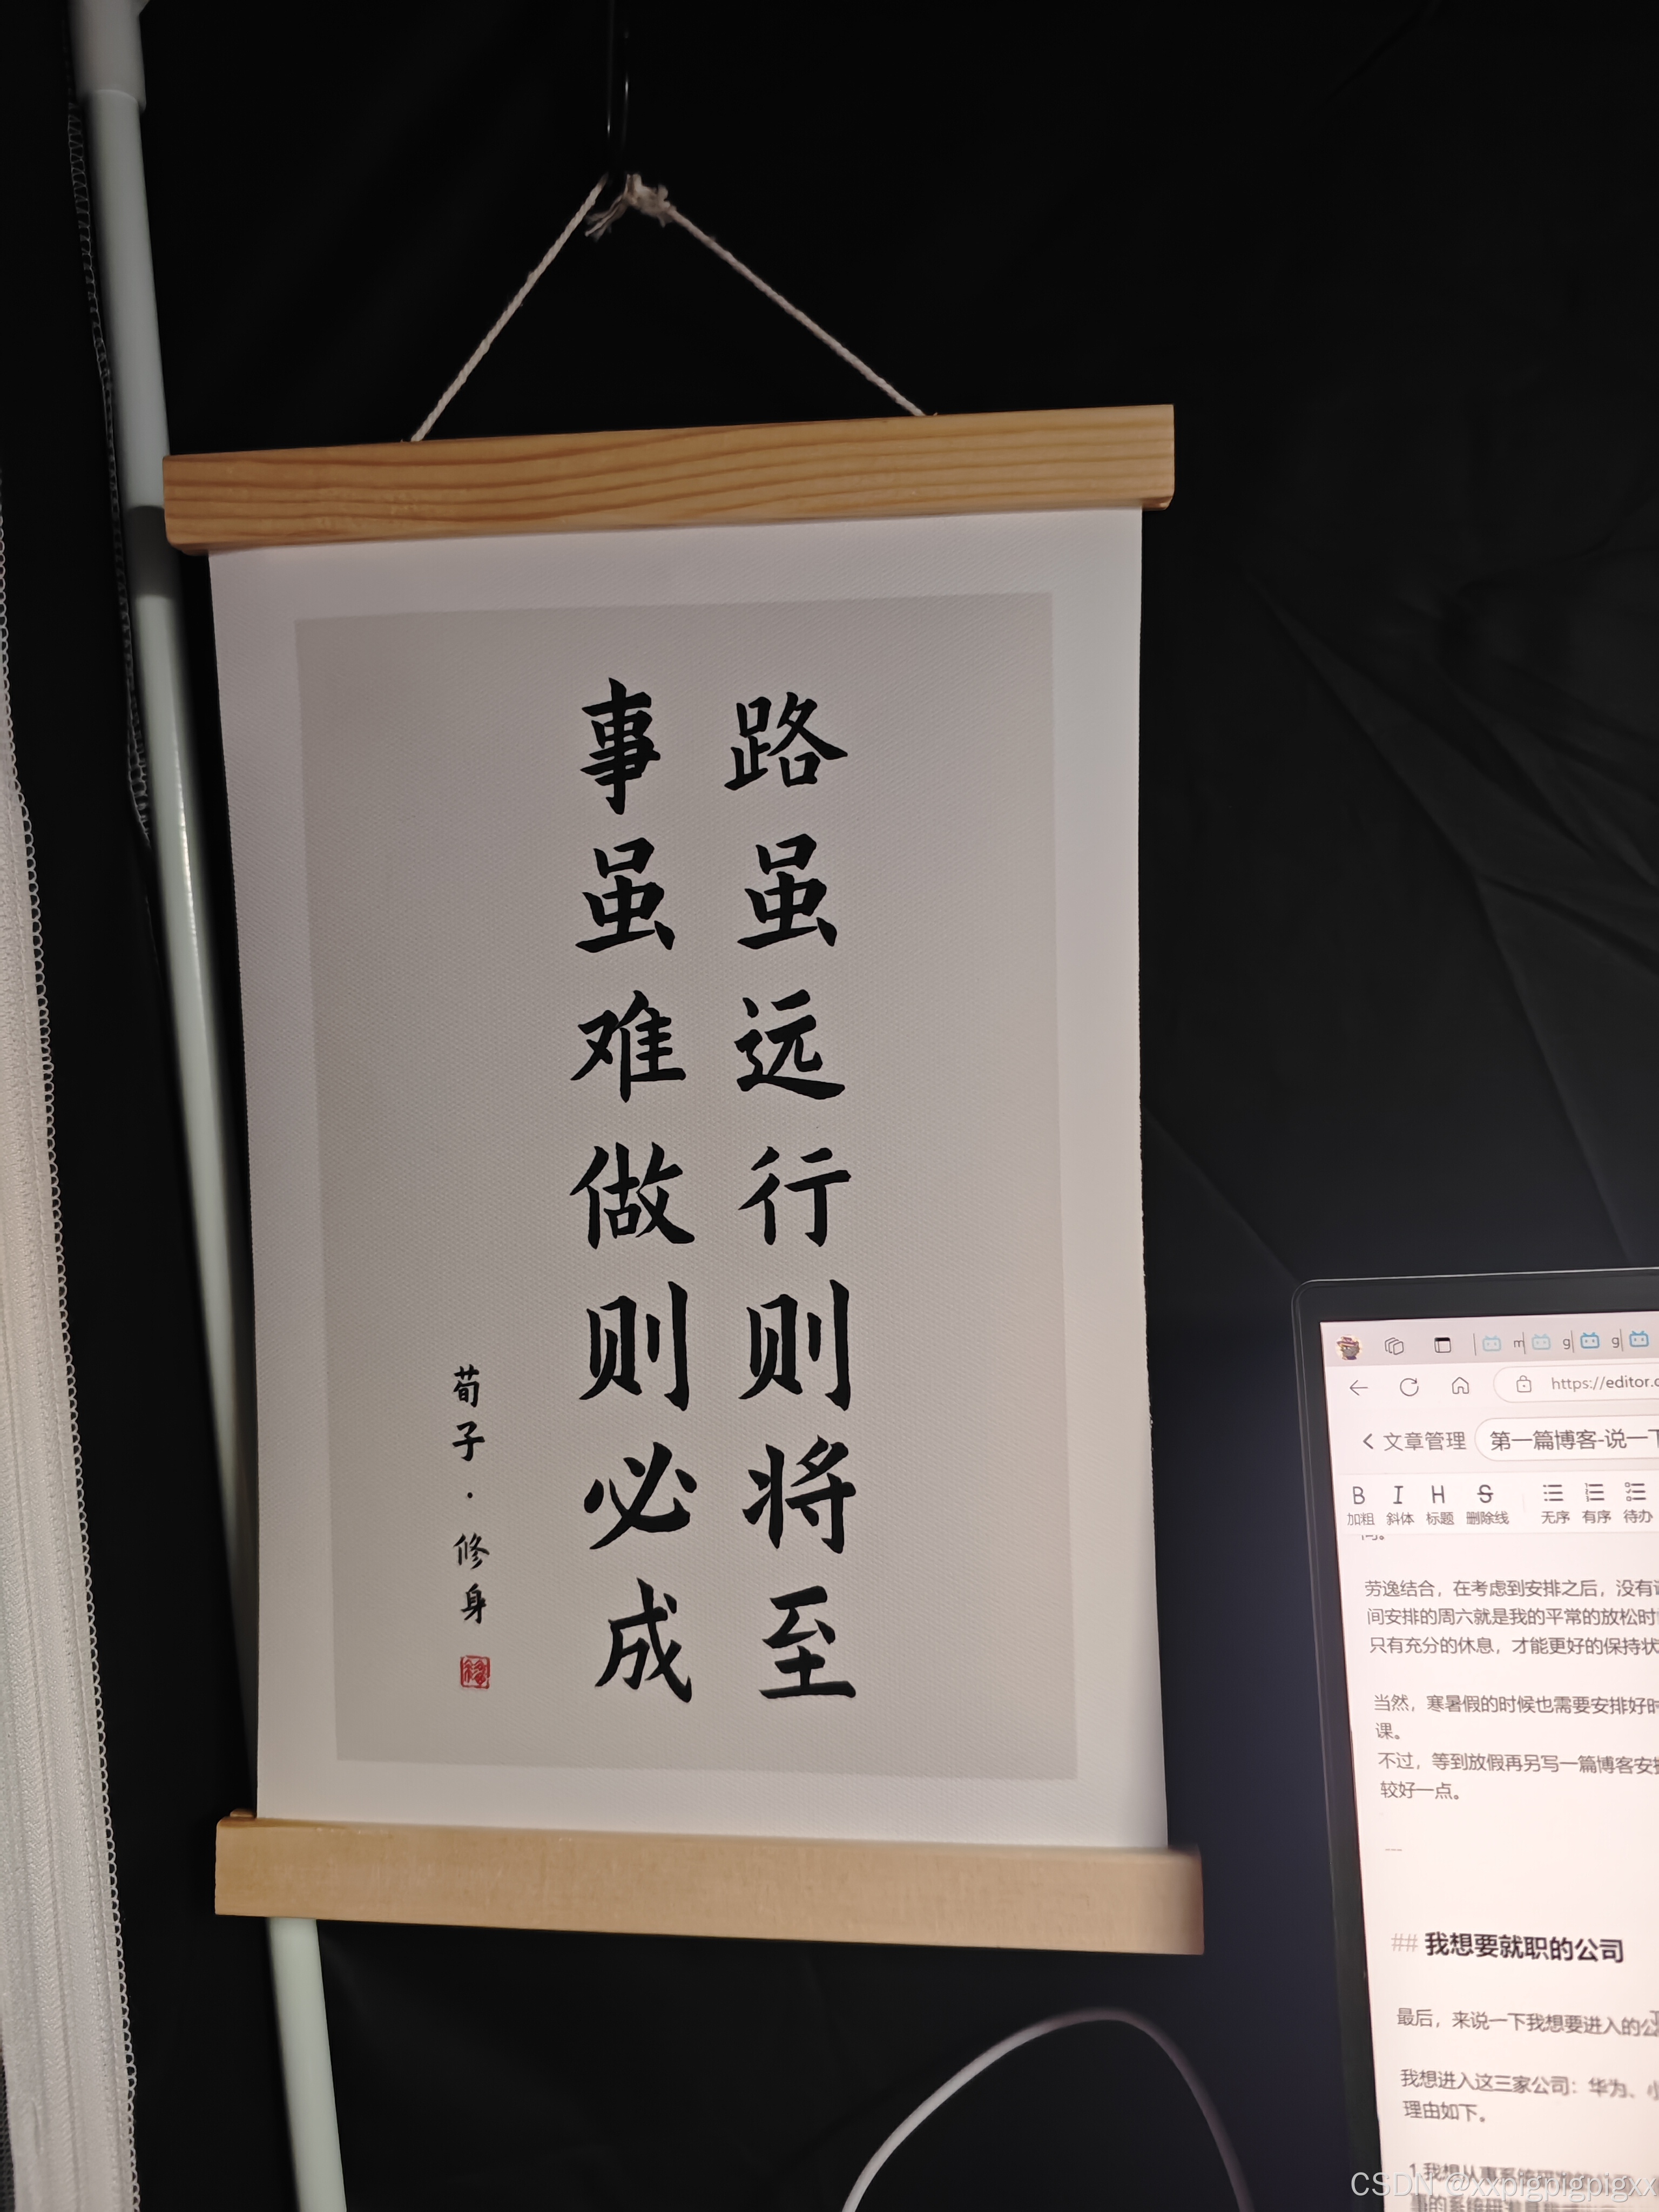 路虽远行则将至
事虽难做则必成
荀子·修身
https://editor.c
文章管理
第一篇博客-说一下
B I H S
加粗 斜体 标题 删除线 无序 有序 待办
劳逸结合，在考虑到安排之后，没有
间安排的周六就是我的平常的放松时
只有充分的休息，才能更好的保持状
当然，寒暑假的时候也需要安排好时
课。
不过，等到放假再另写一篇博客安排
较好一点。
---
## 我想要就职的公司
最后，来说一下我想要进入的公
我想进入这三家公司：华为、小
理由如下。
1.我想从事系统
事的系统
CSDN @xxpigpigpigxx